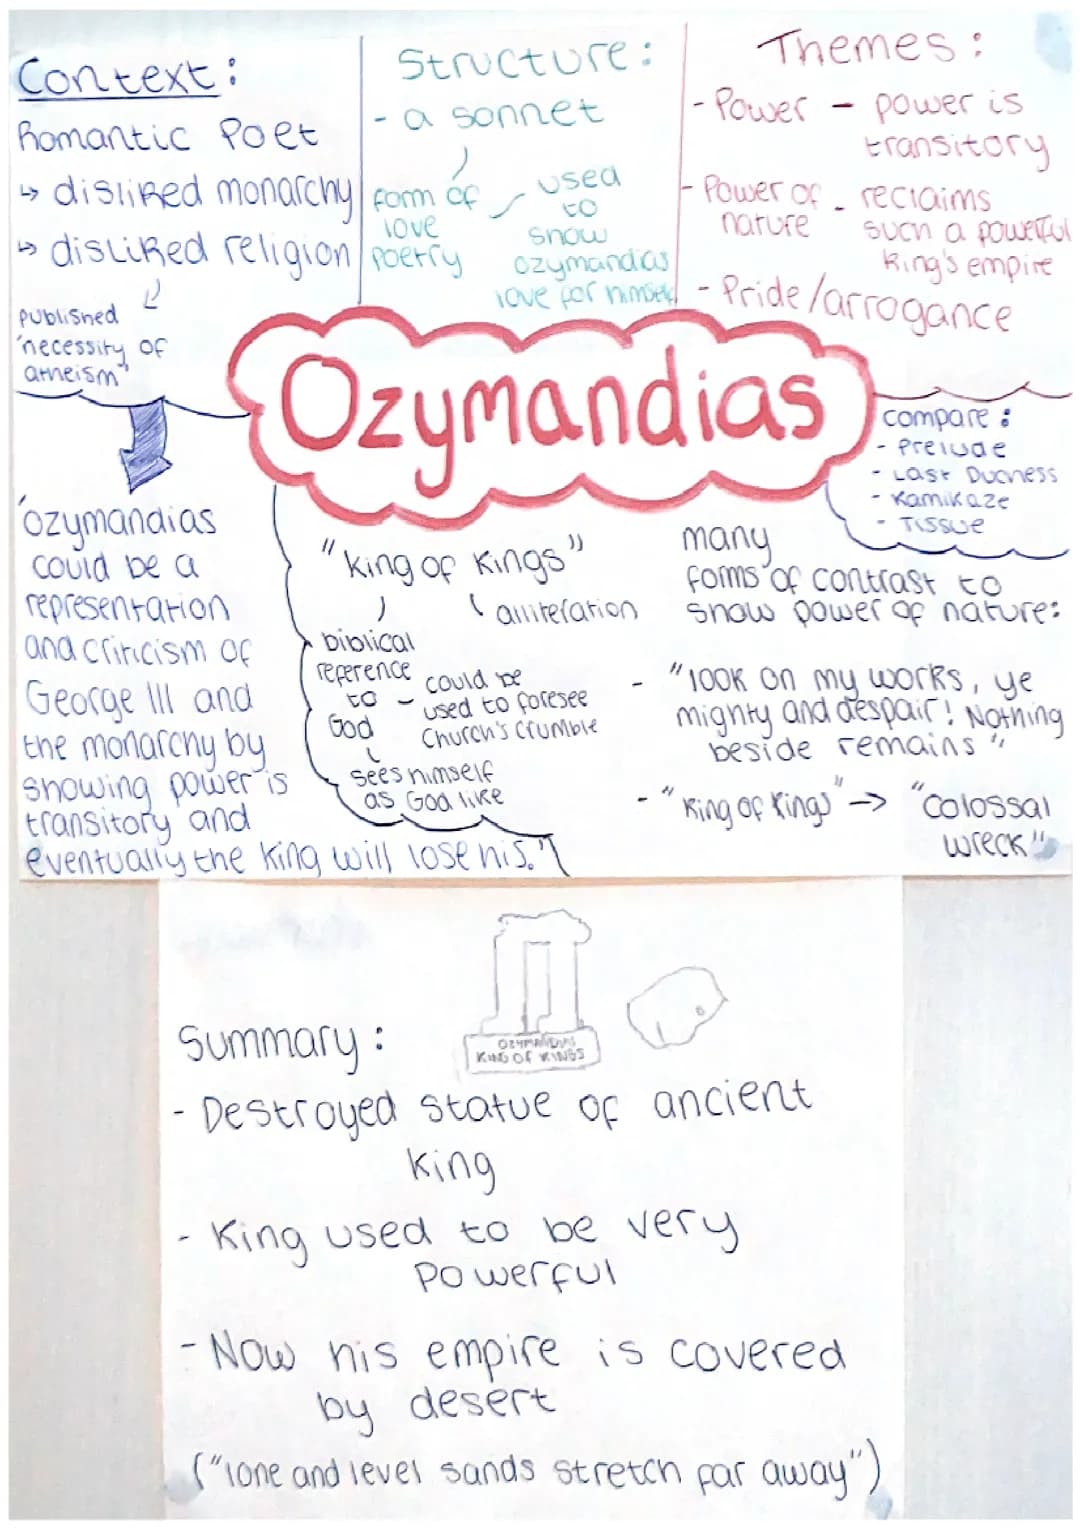 Context:
Romantic Poet
↳ disliked monarchy
↳ disliked religion
published
"necessity of
atheism"
Structure:
- a sonnet
form of
love
poetry
used
to
show
ozymandias
love for himself
Themes:
- Power - power is
transitory
- Power of - reclaims
nature
such a powerful
king's empire
- Pride/arrogance
Ozymandias
compare:
- Prelude
- Last Duchess
- Kamikaze
- Tissue
'ozymandias
could be a
representation
and criticism of
George III and
the monarchy by
showing power is
transitory and
eventually the King will lose his.'
"King of Kings"
alliteration
biblical
reference
to -
God
could be
used to foresee
Church's crumble
sees himself
as God like
many
forms of contrast to
show power of nature:
- "look on my works, ye
mighty and despair! Nothing
beside remains"
- "King of Kings" -> "Colossal
wreck"
Summary:
OZYMANDIAS
KING OF KINGS
- Destroyed statue of ancient
king
- King used to be very
powerful
- Now his empire is covered
by desert
("lone and level sands stretch far away")